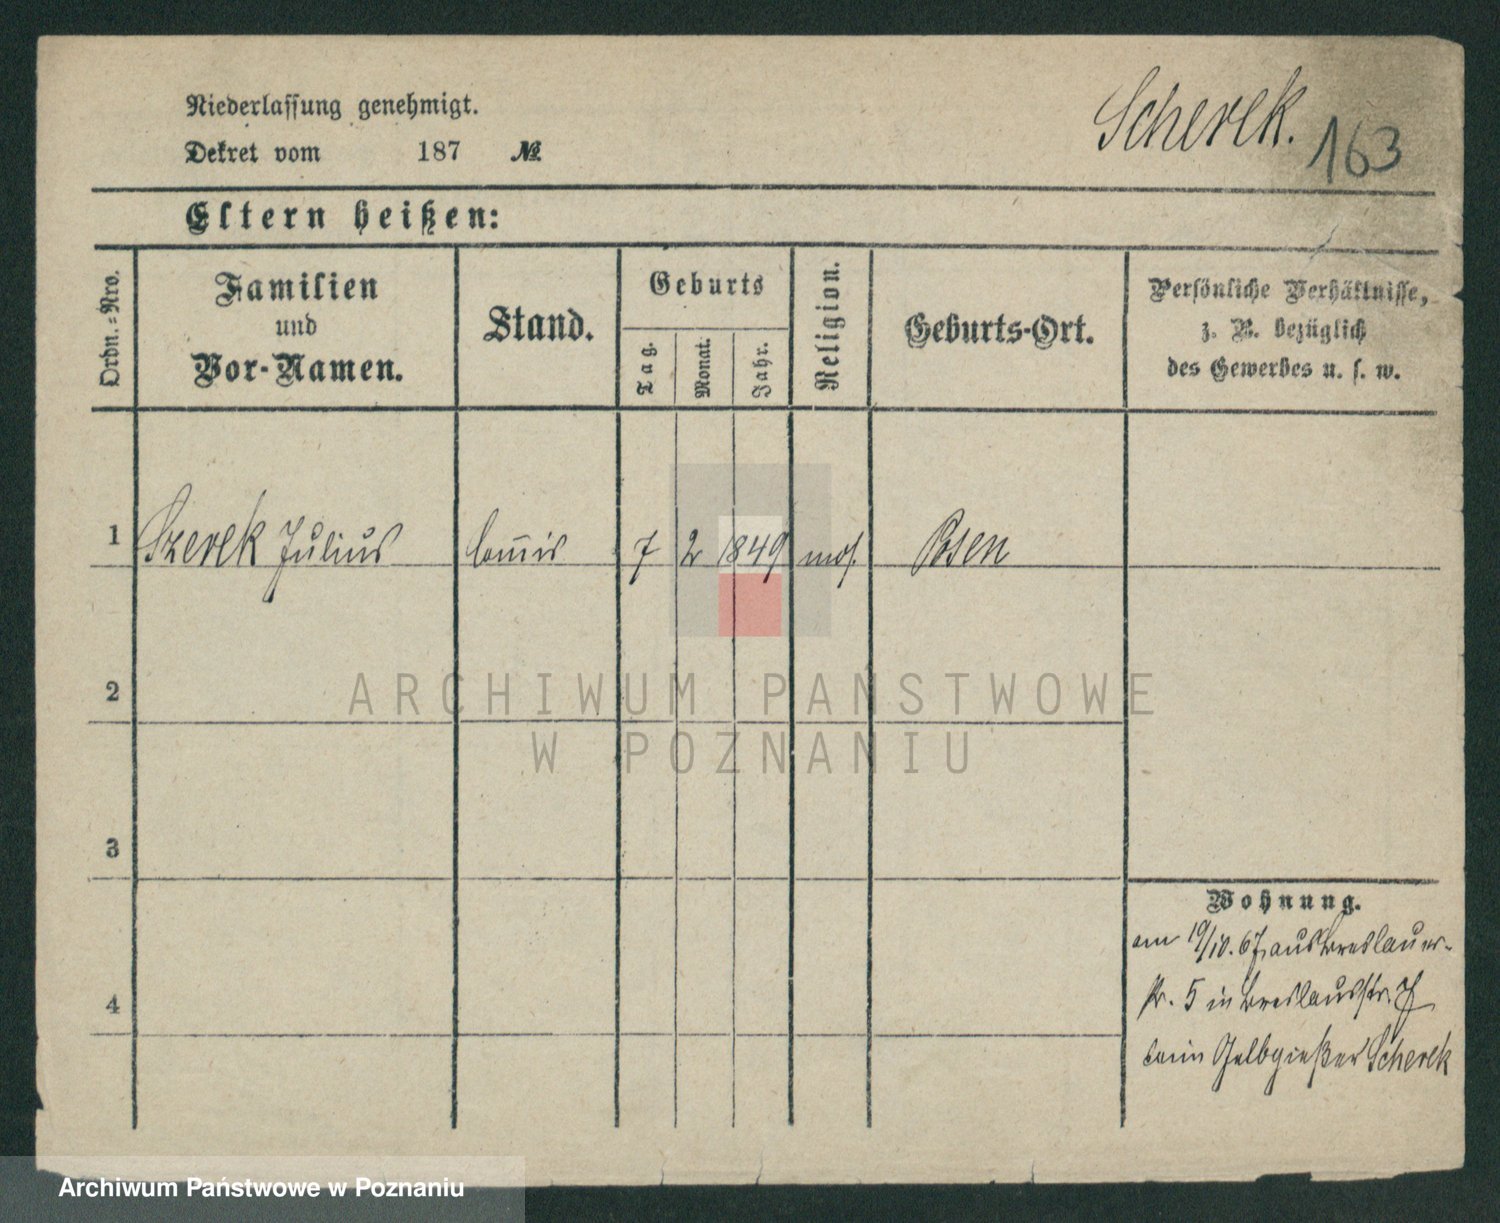 Niederlassung genehmigt.
Scherek. 163
Dekret vom 187 №
Eltern heißen:
Ordn.-Nro.
Familien und Vor-Namen.
Stand.
Geburts
Tag.
Monat.
Jahr.
Religion.
Geburts-Ort.
Persönliche Verhältnisse,
z. B. bezüglich
des Gewerbes u. s. w.
1 Szerek Julius Com̅is 7 2 1849 mos. Posen
2
3
4
Wohnung.
am 19/10. 67 aus Breslauer-
str. 5 in Breslauerstr. 7
beim Gelbgießer Scherek
ARCHIWUM PAŃSTWOWE
W POZNANIU
Archiwum Państwowe w Poznaniu